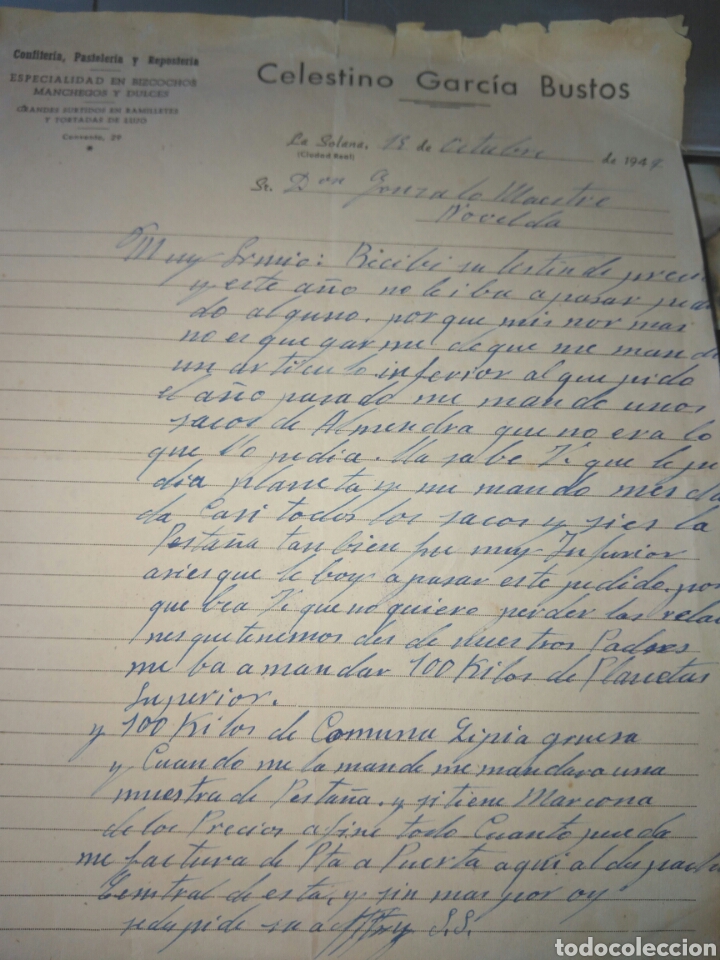 Confitería, Pastelería y Repostería
ESPECIALIDAD EN BIZCOCHOS
MANCHEGOS Y DULCES
GRANDES SURTIDOS EN RAMILLETES
Y TORTADAS DE LUJO
Convento, 29
Celestino García Bustos
La Solana, 18 de Octubre de 194
(Ciudad Real)
Sr. Don Gonzalo Maestre
Novelda
Muy Sr mio: Recibi su lestin de preci
y este año no le iba a pasar pedi
do alguno, por que mis nor mas
no es que gar me de que me mand
un articulo inferior al que pido
el año pasado me mando unos
sacos de Almendra que no era lo
que Yo pedia. Ya sabe V. que le pe
dia planeta y me mando mescla
da Casi todos los sacos y si es la
Pestaña tan bien fue muy Inferior
asi es que le boy a pasar este pedido, por
que bea V. que no quiero perder las relac
nes que tenemos des de nuestros Padres
me ba a mandar 100 Kilos de Planetas
Superior.
y 100 Kilos de Comuna Lipia gruesa
y Cuando me la mande me mandara una
muestra de Pestaña, y si tiene Marcona
de los Precios afine todo Cuanto pueda
me factura de Pta a Puerta aqui al despacho
Central de esta, y sin mas por oy
se des pide su affmo S.S.
todocoleccion